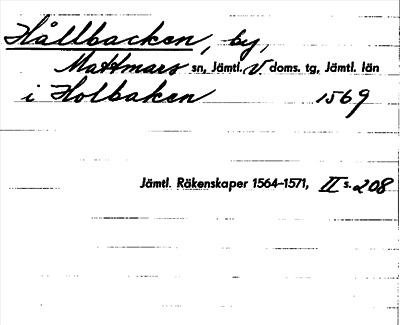 Hållbacken, by,
Mattmars sn, Jämtl. V doms. tg, Jämtl. län
i Holbaken 1569
Jämtl. Räkenskaper 1564–1571, II s. 208